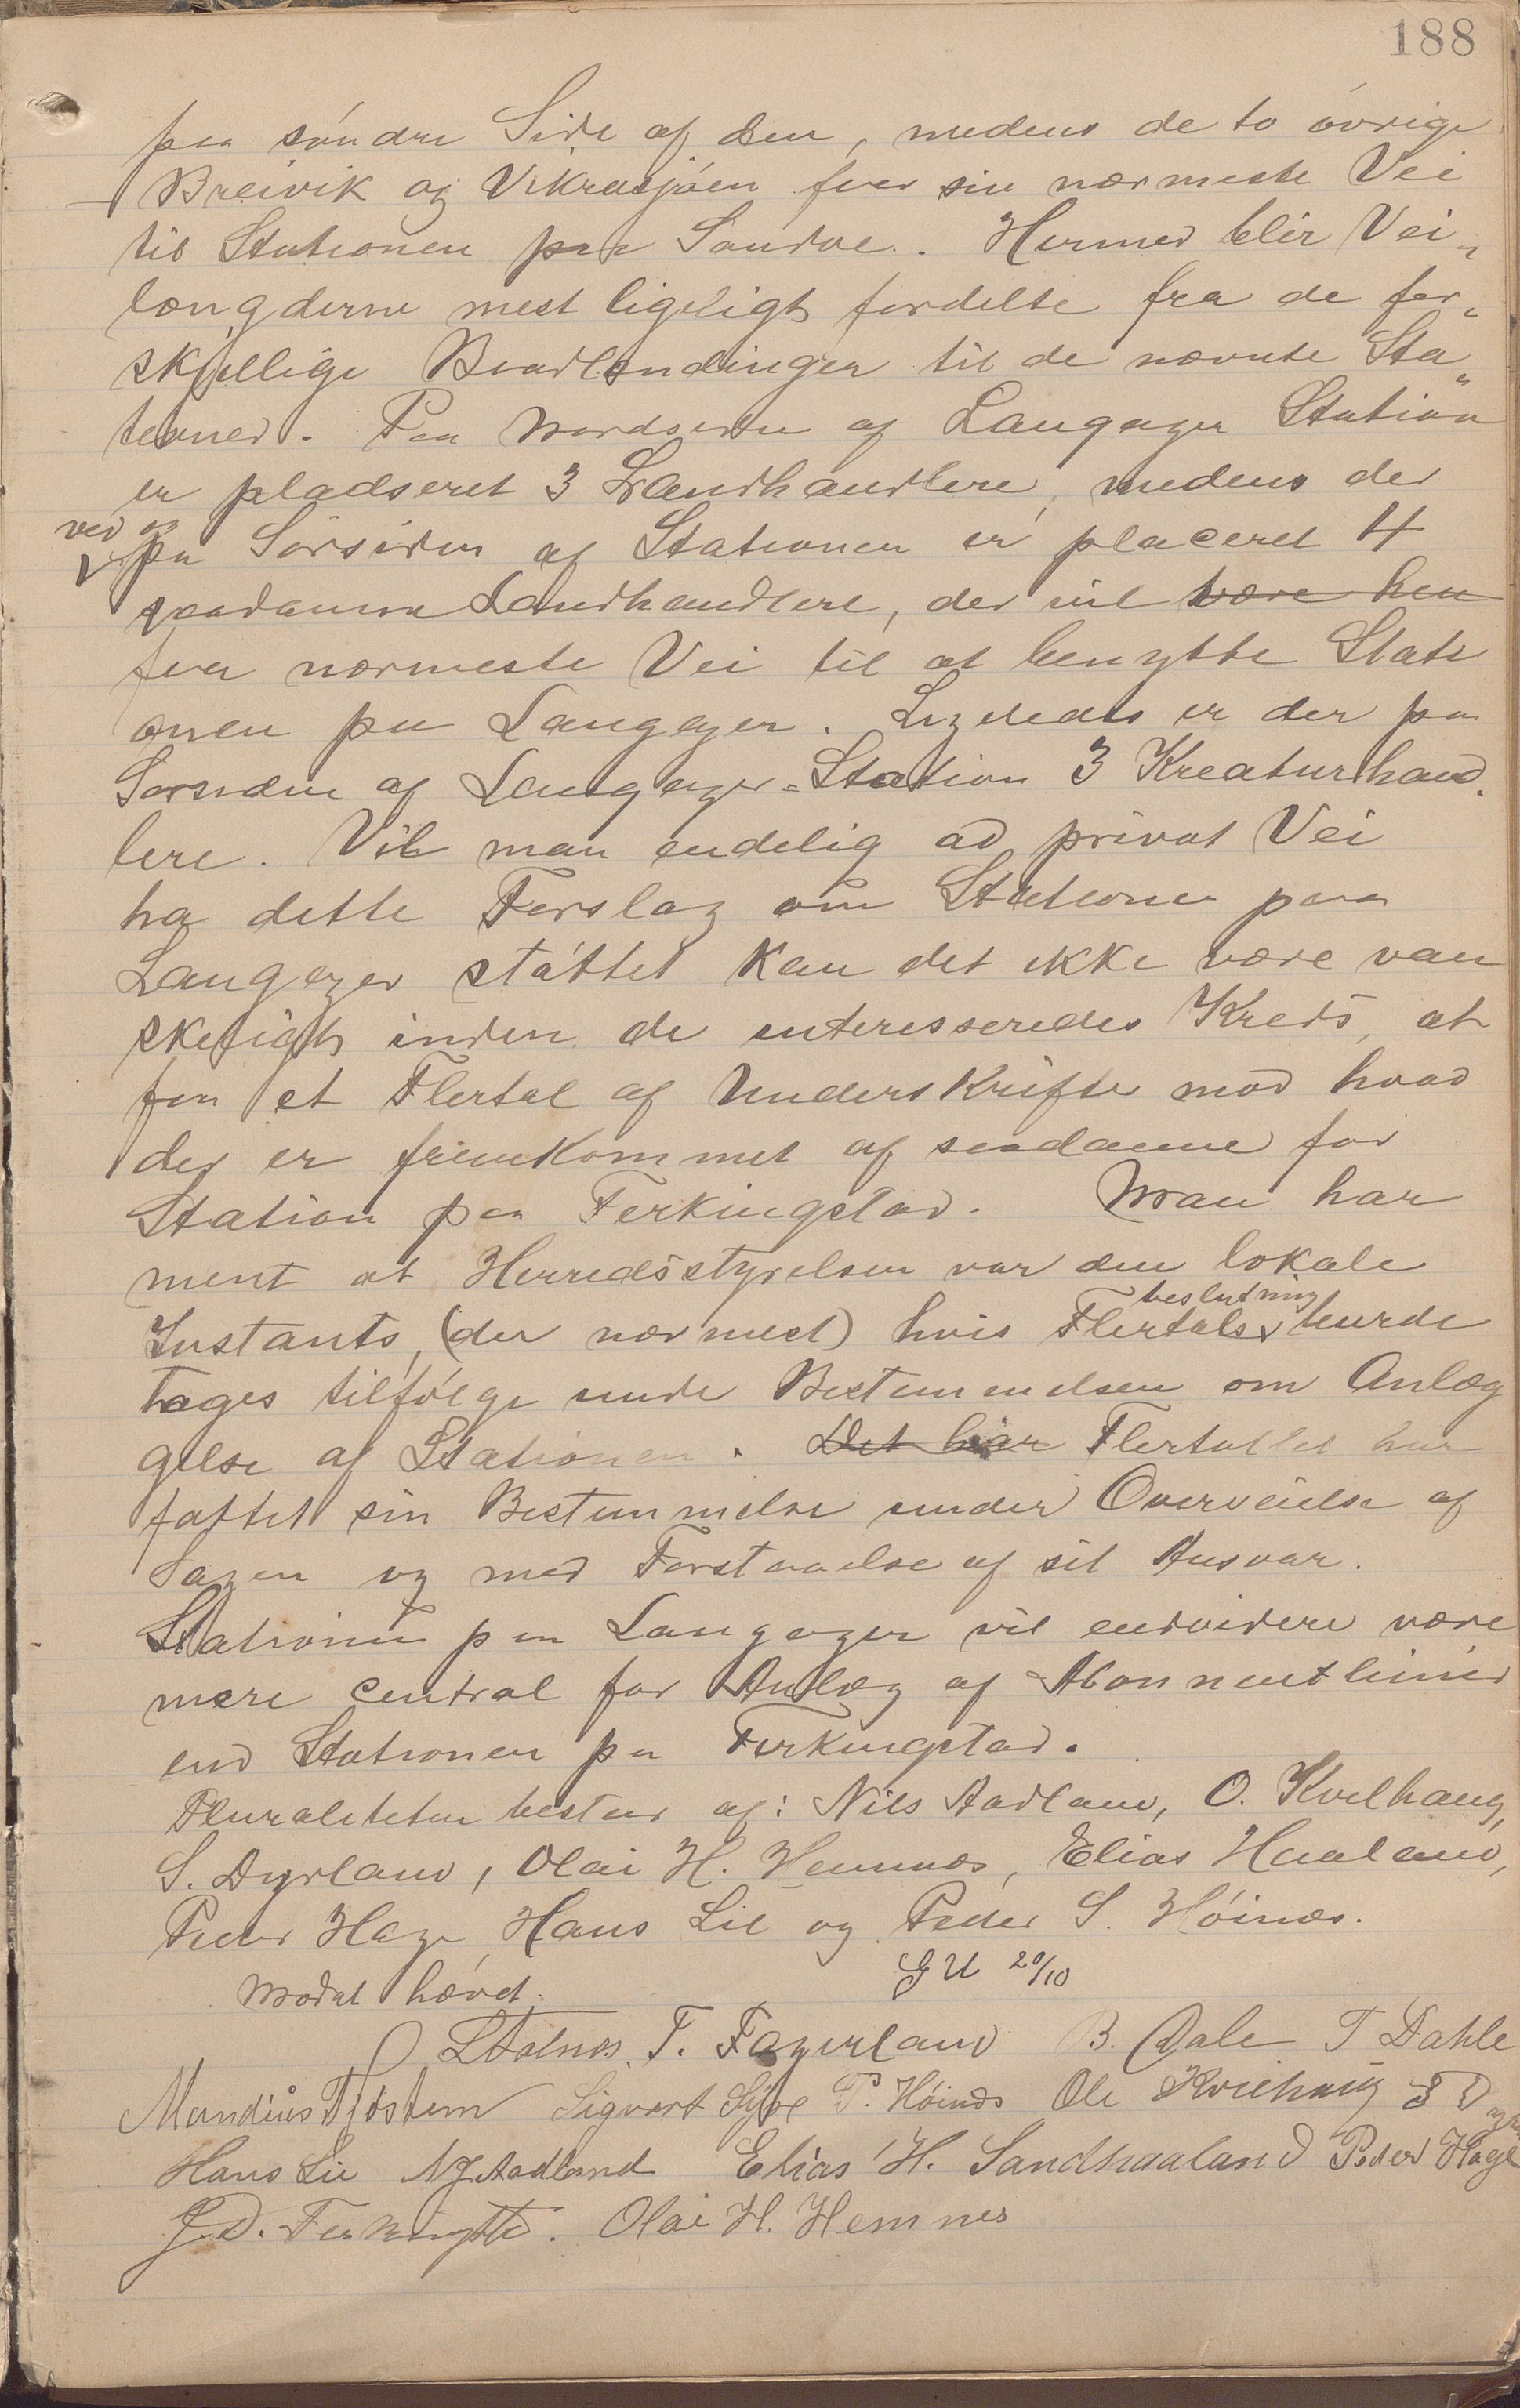 188
paa søndre Side af den, medens de to øvrige
Breivik og Vikrasjøen faar sin nærmeste Vei
til Stationen paa Sandve. Hermed blir Vei-
længderne mest ligeligt fordelte fra de for-
skjellige Baadlændinger til de nævnte Sta-
tioner. Paa Nordsiden af Langager Station
er pladseret 3 Landhandlere, medens der
ved og
paa Sørsiden af Stationen er placeret 4
saadanne Landhandlere, der vil være hen
faa nærmeste Vei til at benytte Stati
onen paa Langager. Ligeledes er der paa
Sørsiden af Langager-Station 3 Kreaturhand-
lere. Vil man endelig ad privat Vei
ha dette Forslag om Station paa
Langager støttet kan det ikke være van
skeligt inden de interesseredes Kreds, at
faa et Flertal af Underskrifter mod hvad
der er fremkommet af saadanne for
Station paa Ferkingstad. Man har
ment at Herredsstyrelsen var den lokale
beslutning
Instants, (der nærmest) hvis Flertals burde
tages tilfølge under Bestemmelsen om Anlæg
gelse af Stationen. Det har Flertallet har
fattet sin Bestemmelse under Overveielse af
Sagen og med Forstaaelse af sit Ansvar.
Stationen paa Langager vil endvidere være
mere central for Anlæg af Abonnentlinier
end Stationen paa Ferkingstad.
Pluraliteten bestaar af: Nils Aadland, O. Kvilhaug,
S. Dyrland, Olai H. Hemnæs, Elias Haaland,
Peder Hage, Hans Lie og Peder S. Høinæs.
Mødet hævet. GU 20/10
T. Fagerland B. Dale T Dahle
Mandius Tjøstem Sigvart P. Høinæs Ole Kvilhaug S D
Hans Lie N J Aadland Elias H. Sandhaaland Peder Hage
J. D. Ferkingstad. Olai H. Hemnes